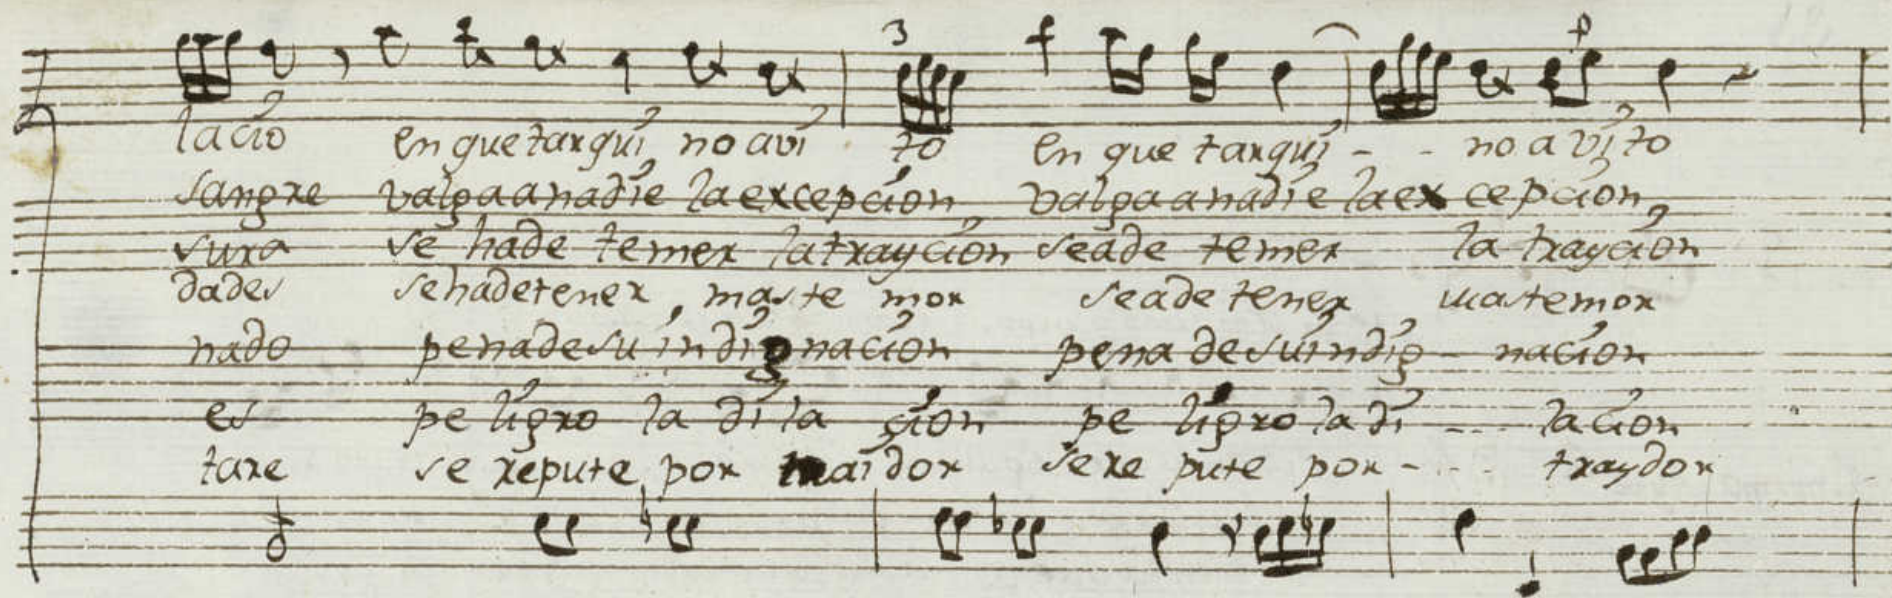 3 p
lacio en que tarqui no avi to en que tarqui - - no a vi to
sangre valga a nadie la excepcion valga a nadie la ex cepcion
sura se hade temer la traycion seade temer la traycion
dades sehadetener mas te mor seade tener mastemor
nado penadesu indignacion pena desuindig - nacion
es pe ligro la di la cion pe ligro la di --- lacion
tare se repute por traidor sere pute por - - - traydor